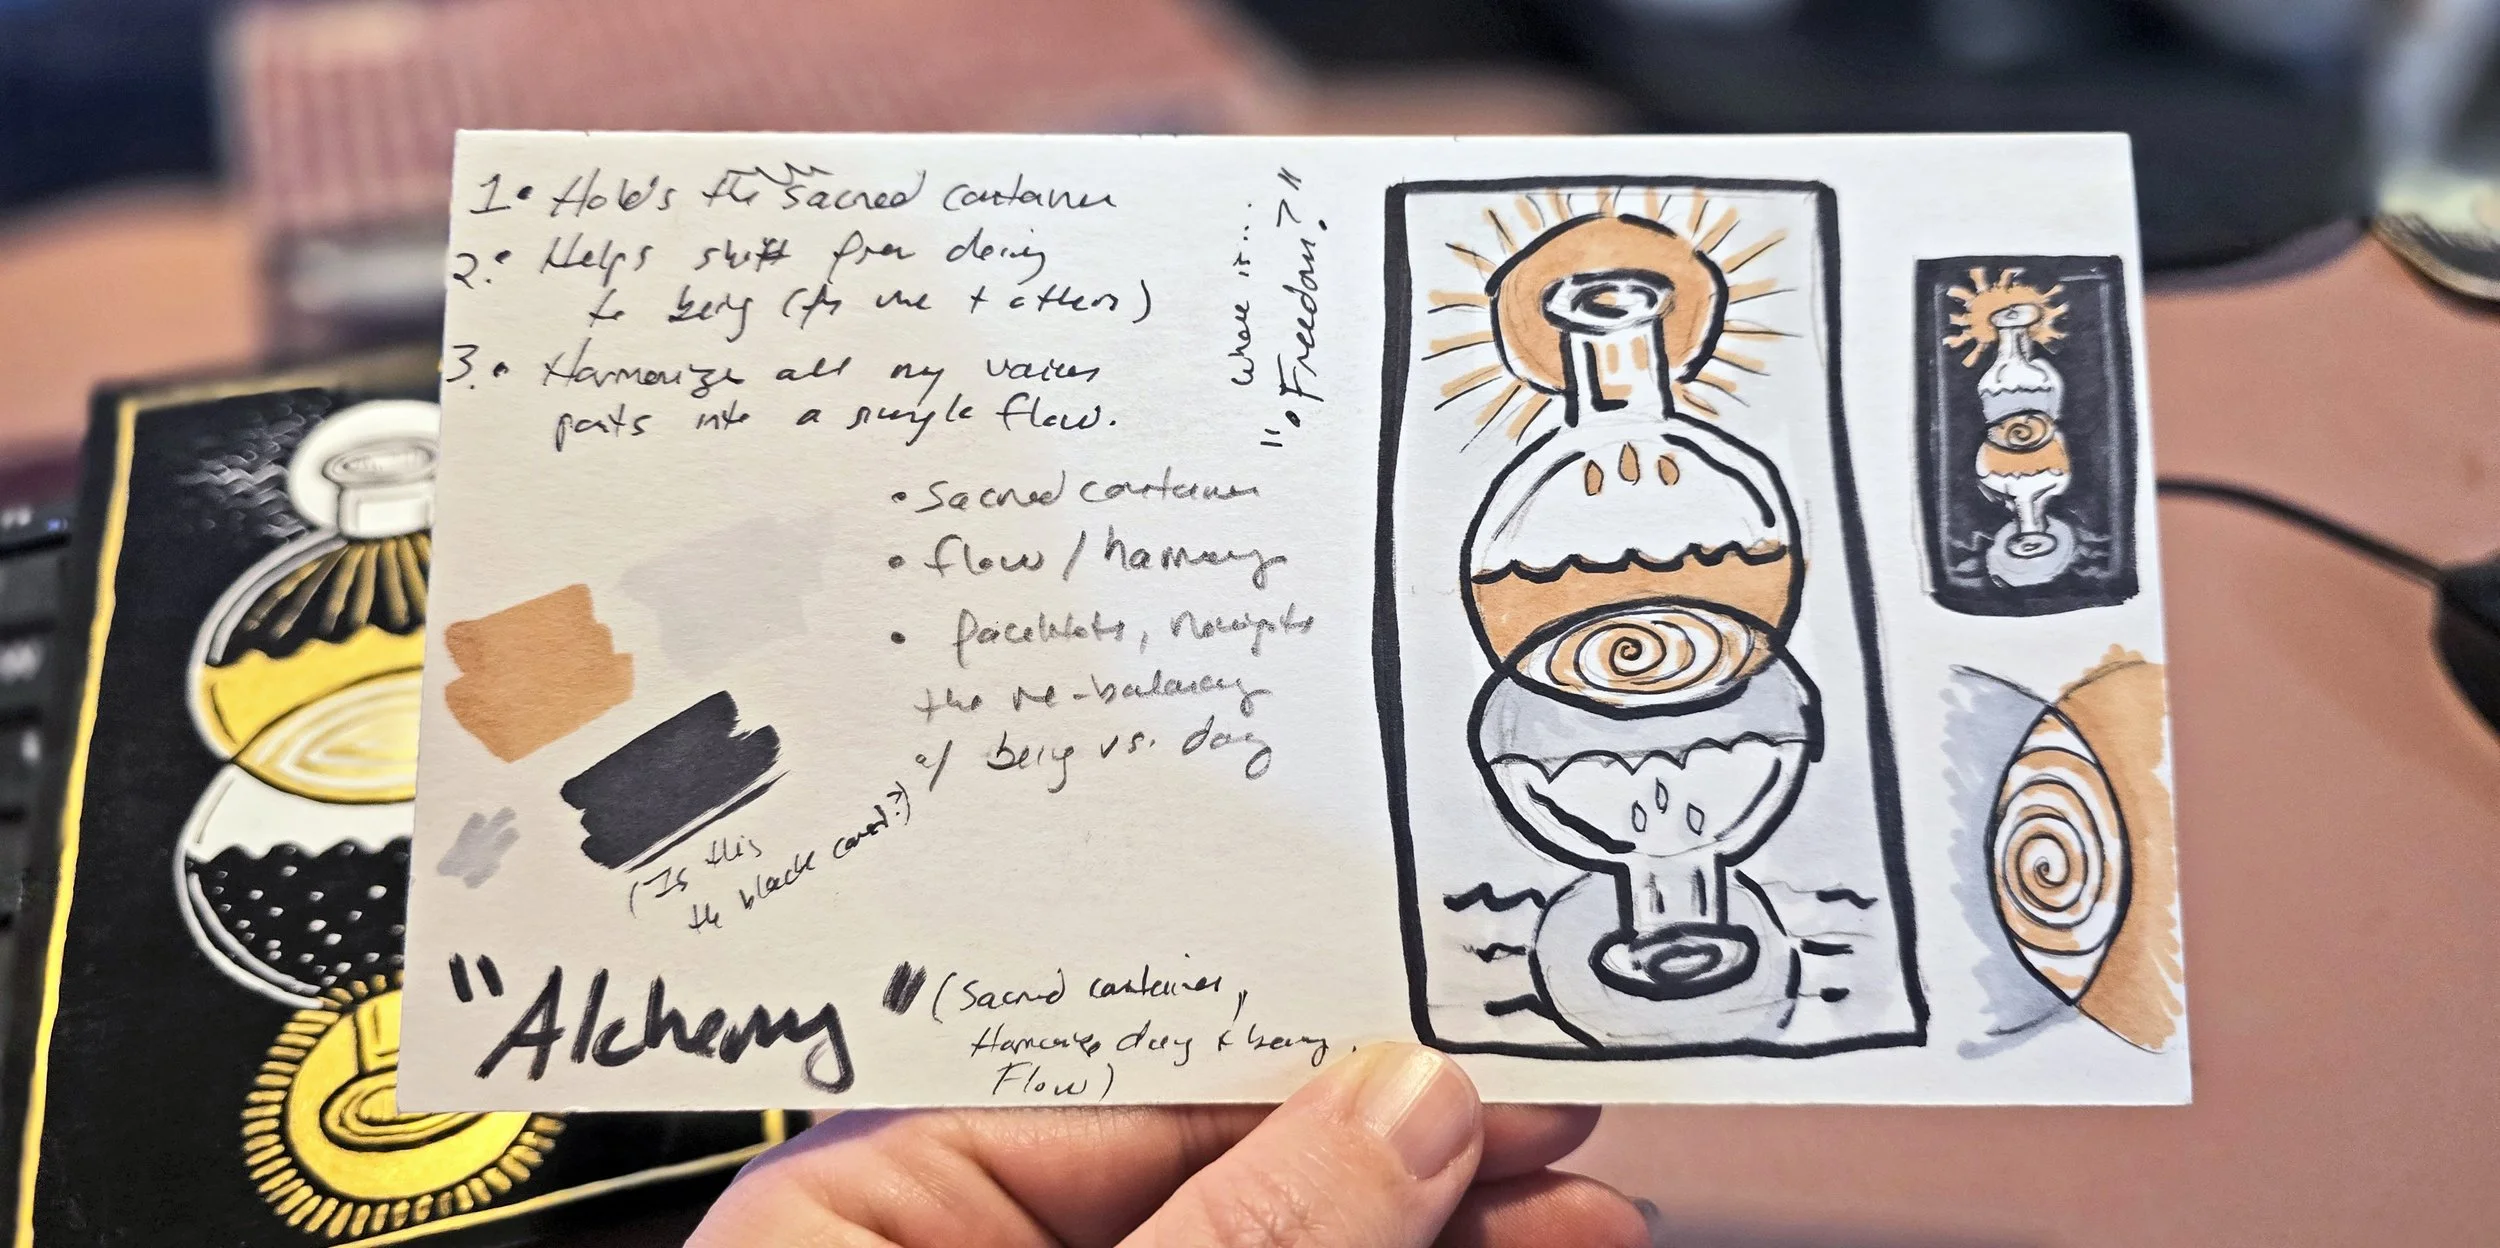 1. • Holds the sacred container
2. • Helps shift from doing
to being (for me + others)
3. • Harmonize all my various
parts into a single flow.
where is...
"Freedom?"
• Sacred container
• flow / harmony
• facilitate, navigate
the re-balancing
w/ being vs. doing
(Is this
the black card?)
"Alchemy" (Sacred container,
Harmonize doing + being,
Flow)